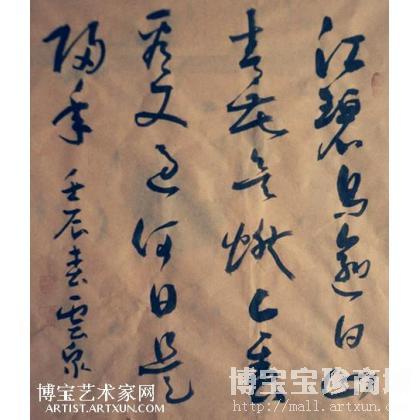 江碧鳥逾白山
青花欲燃今春
看又過何日是
歸年
壬辰春雲泉
博宝艺术家网
ARTIST.ARTXUN.COM
博宝宝珍商城
http://mall.artxun.com